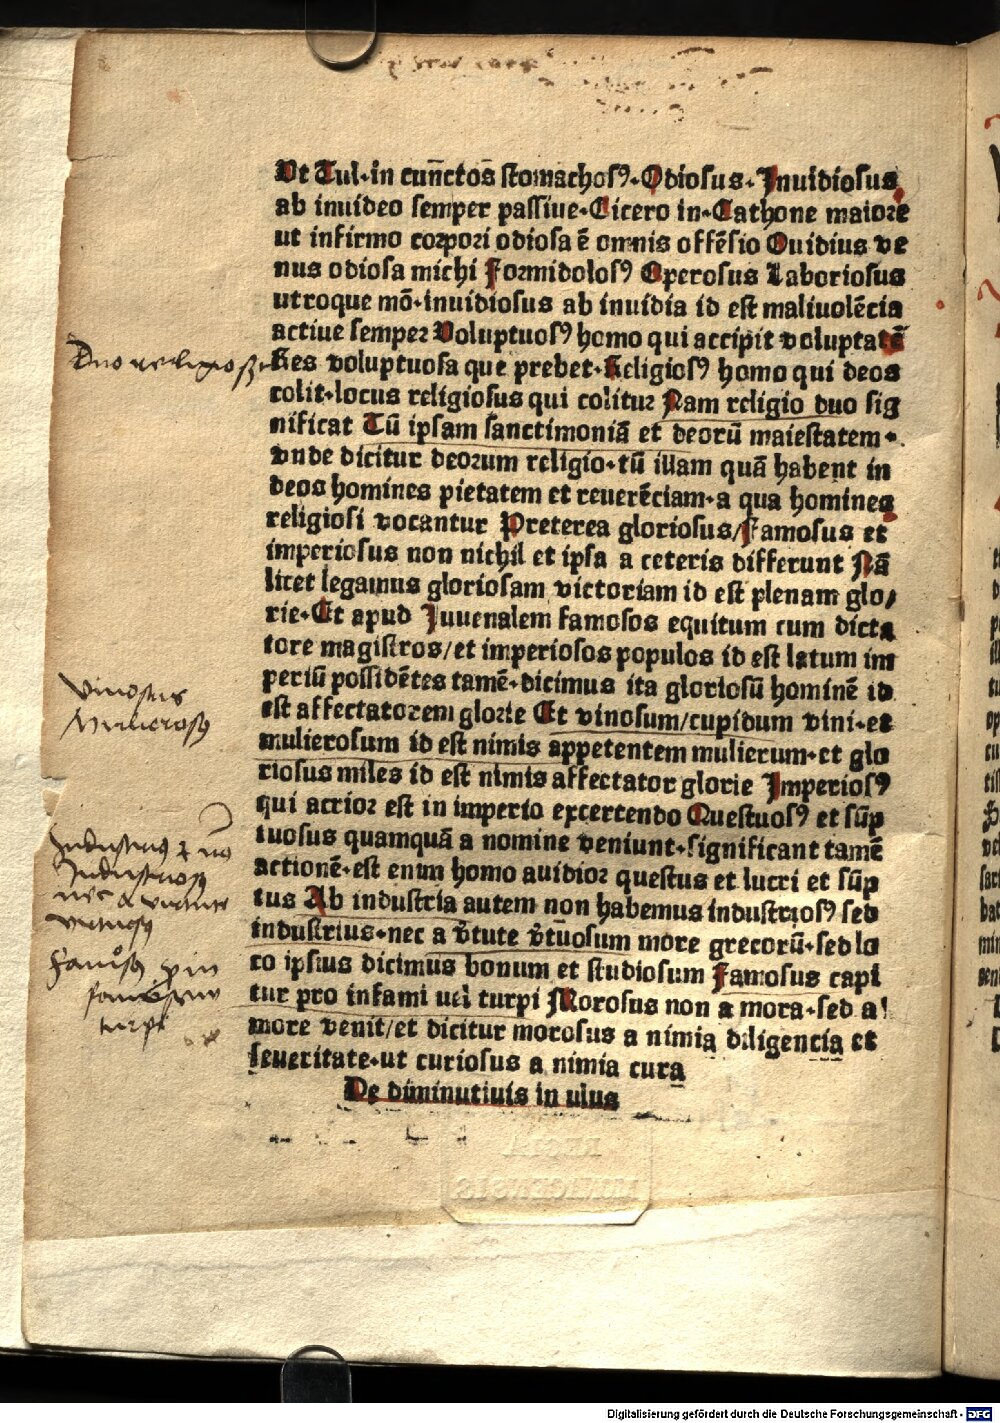 Ut Tul·in cun̄ctos̄ stomachosꝰ·Odiosus·Inuidiosus
ab inuideo semper passiue·Cicero in·Cathone maiore
ut infirmo corpori odiosa ē omnis offēsio Ouidius ve
nus odiosa michi Formidolosꝰ Operosus Laboriosus
utroque mō·inuidiosus ab inuidia id est maliuolēcia
actiue semper Voluptuosꝰ homo qui accipit voluptatē
Duo religiosꝰ
Res voluptuosa que prebet·Religiosꝰ homo qui deos
colit·locus religiosus qui colitur Nam religio duo sig
nificat Tū ipsam sanctimoniā et deorū maiestatem·
vnde dicitur deorum religio·tū illam quā habent in
deos homines pietatem et reuerēciam·a qua homines
religiosi vocantur Preterea gloriosus/Famosus et
imperiosus non nichil et ipsa a ceteris differunt Nā
licet legamus gloriosam victoriam id est plenam glo/
rie·Et apud Juuenalem famosos equitum cum dicta
tore magistros/et imperiosos populos id est latum im
periū possidētes tamē·dicimus ita gloriosū hominē id
est affectatorem glorie Et vinosum/cupidum vini·et
mulierosum id est nimis appetentem mulierum·et glo
riosus miles id est nimis affectator glorie Imperiosꝰ
qui acrior est in imperio excercendo Questuosꝰ et sūp
tuosus quamquā a nomine veniunt·significant tamē
actionē·est enim homo auidior questus et lucri et sūp
tus Ab industria autem non habemus industriosꝰ sed
industrius·nec a v̄tute v̄tuosum more grecorū·sed lo
co ipsius dicimus bonum et studiosum Famosus capi
tur pro infami uel turpi Morosus non a mora·sed a
more venit/et dicitur morosus a nimia diligencia et
seueritate·ut curiosus a nimia cura
De diminutiuis in ulus
vinosus
Mulierosꝰ
Industrius
Industriosꝰ
nec a virtute
virtuosꝰ
Famosꝰ
turpi
REGIA
MONACENSIS
Digitalisierung gefördert durch die Deutsche Forschungsgemeinschaft - DFG